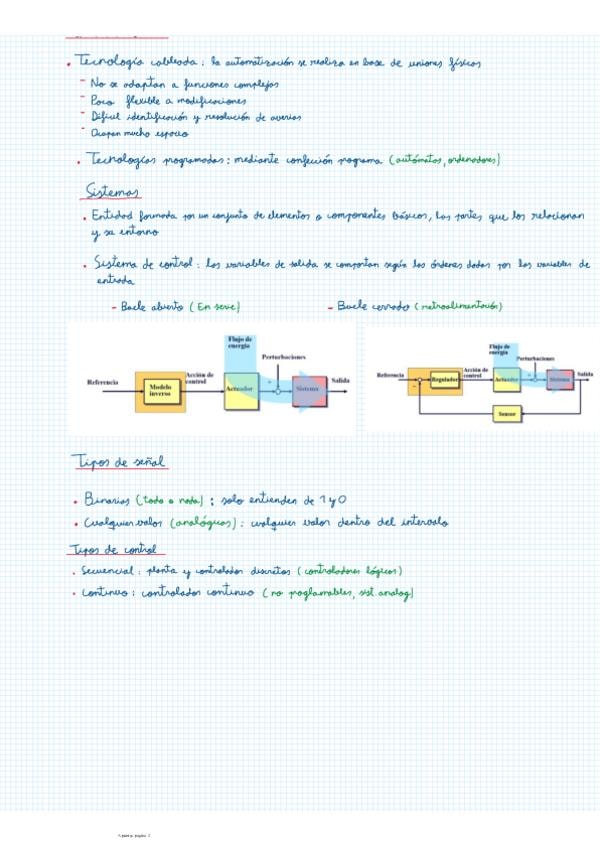 • Tecnología cableada: la automatización se realiza en base de uniones físicas
- No se adaptan a funciones complejas
- Poco flexible a modificaciones
- Difícil identificación y resolución de averías
- Ocupan mucho espacio
• Tecnologías programadas: mediante confección programa (autómatas, ordenadores)
Sistemas
• Entidad formada por un conjunto de elementos o componentes básicos, las partes que los relacionan
y su entorno
• Sistema de control: las variables de salida se comportan según las órdenes dadas por las variables de
entrada
- Bucle abierto (En serie)
- Bucle cerrado (retroalimentación)
Flujo de
energía
Perturbaciones
Referencia
Modelo
inverso
Acción de
control
Actuador
+
Sistema
Salida
Flujo de
energía
Perturbaciones
Referencia
Regulador
Acción de
control
Actuador
Sistema
Salida
Sensor
Tipos de señal
• Binarias (todo o nada): solo entienden de 1 y 0
• Cualquier valor (analógicas): cualquier valor dentro del intervalo
Tipos de control
• Secuencial: planta y controlador discretos (controladores lógicos)
• Continuo: controlador continuo (no proglamables, sist. analog)